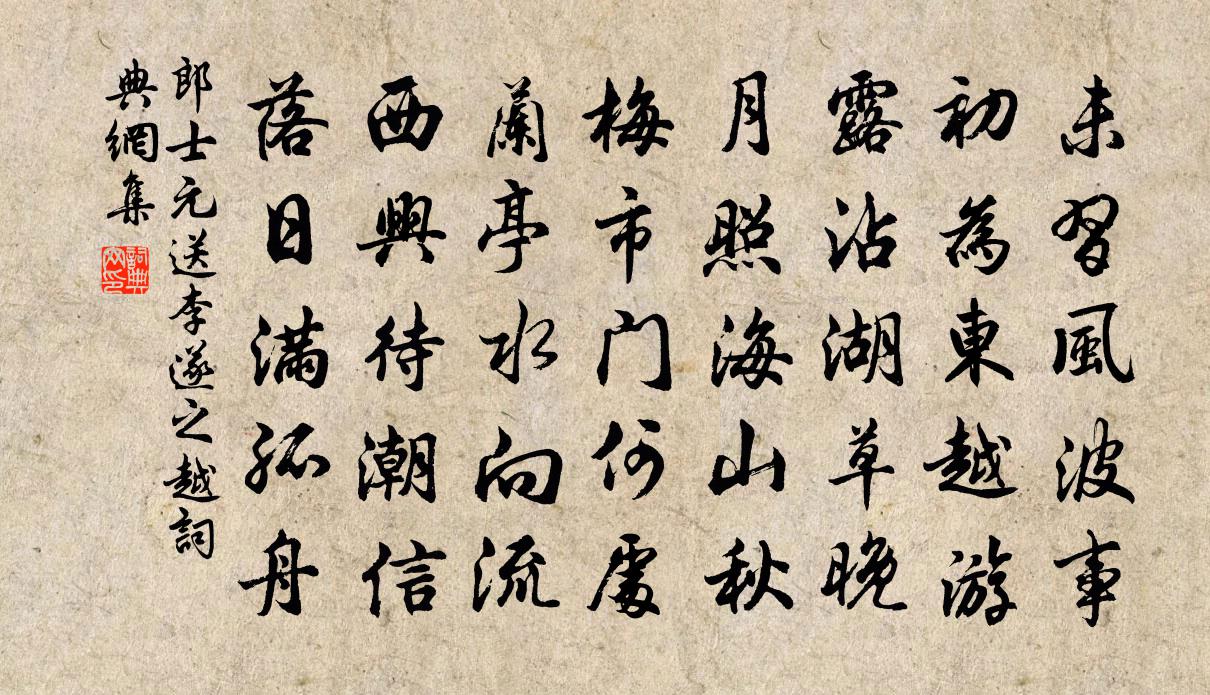 未習風波事
初為東越游
露沾湖草晚
月照海山秋
梅市門何處
蘭亭水向流
西興待潮信
落日滿孤舟
郎士元送李遂之越詞
典網集
詞典
网印